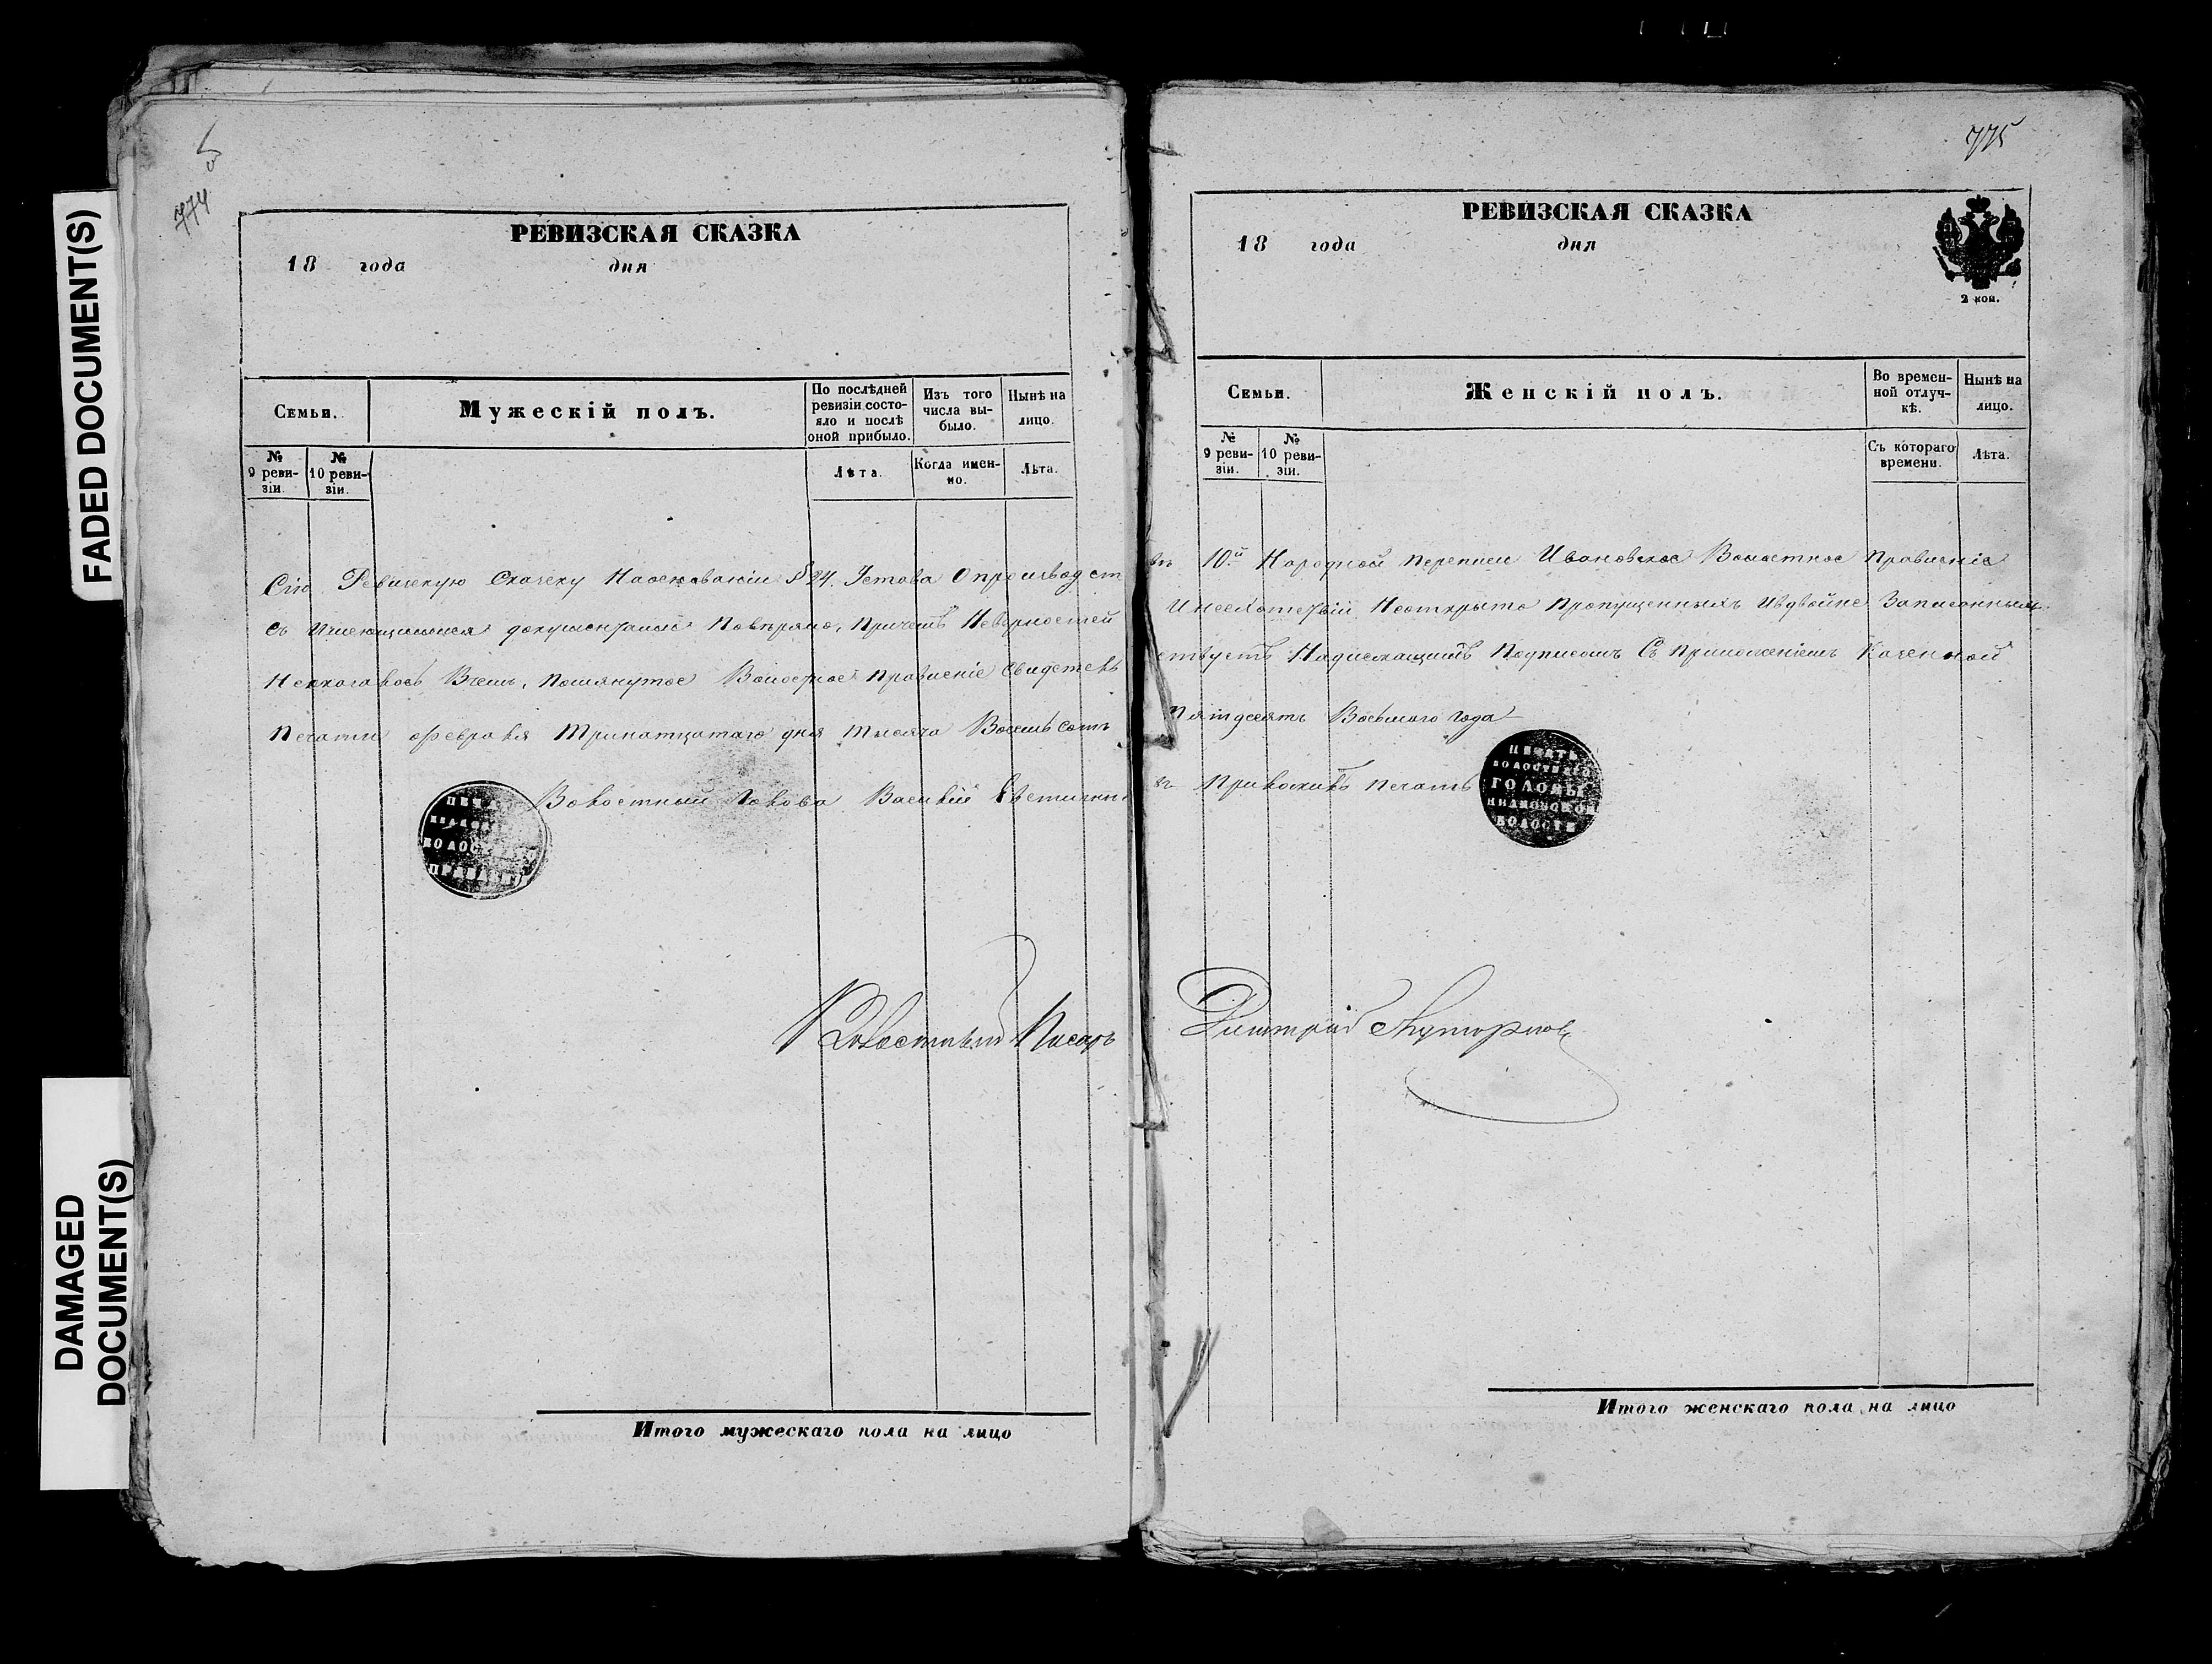 FADED DOCUMENT(S)
DAMAGED
DOCUMENT(S)
774
РЕВИЗСКАЯ СКАЗКА
18 года дня
Семьи.
Мужескій полъ.
По послѣдней ревизіи состояло и послѣ оной прибыло.
Изъ того числа выбыло.
Нынѣ на лицо.
№ 9 ревизіи.
№ 10 ревизіи.
Лѣта.
Когда именно.
Лѣта.
Сію Ревизскую Сказку Наоснованіи § 24. Устова Опроизводст
съ Имеющимися документами Повѣряло, Причемъ Неверностей
Неоказалось Вчемъ, помянутое Волостное правленіе Свидетель
печати февраля Тринатцатаго дня тысяча Восемьсотъ
Волостный Голова Василій
ПЕЧ
ВОЛОС
ПРАВЛЕНІ
Волостный Писарь
Итого мужескаго пола на лицо
775
РЕВИЗСКАЯ СКАЗКА
18 года дня
2 коп.
Семьи.
Женскій полъ.
Во временной отлучкѣ.
Нынѣ на лицо.
№ 9 ревизіи.
№ 10 ревизіи.
Съ котораго времени.
Лѣта.
10й Народной переписи Ивановское Волостное правленіе
Неоткрыто Пропущенныхъ Ивдвойне Записанныхъ
ствуетъ Надлежащимъ Подписомъ Съ приложеніемъ Казенной
пятдесятъ Восьмого года
Приложилъ печать
ПЕЧАТЬ
ВОЛОСТНАГО
ГОЛОВЫ
ИВАНОВСКОЙ
ВОЛОСТИ
Дмитрій
Итого женскаго пола на лицо